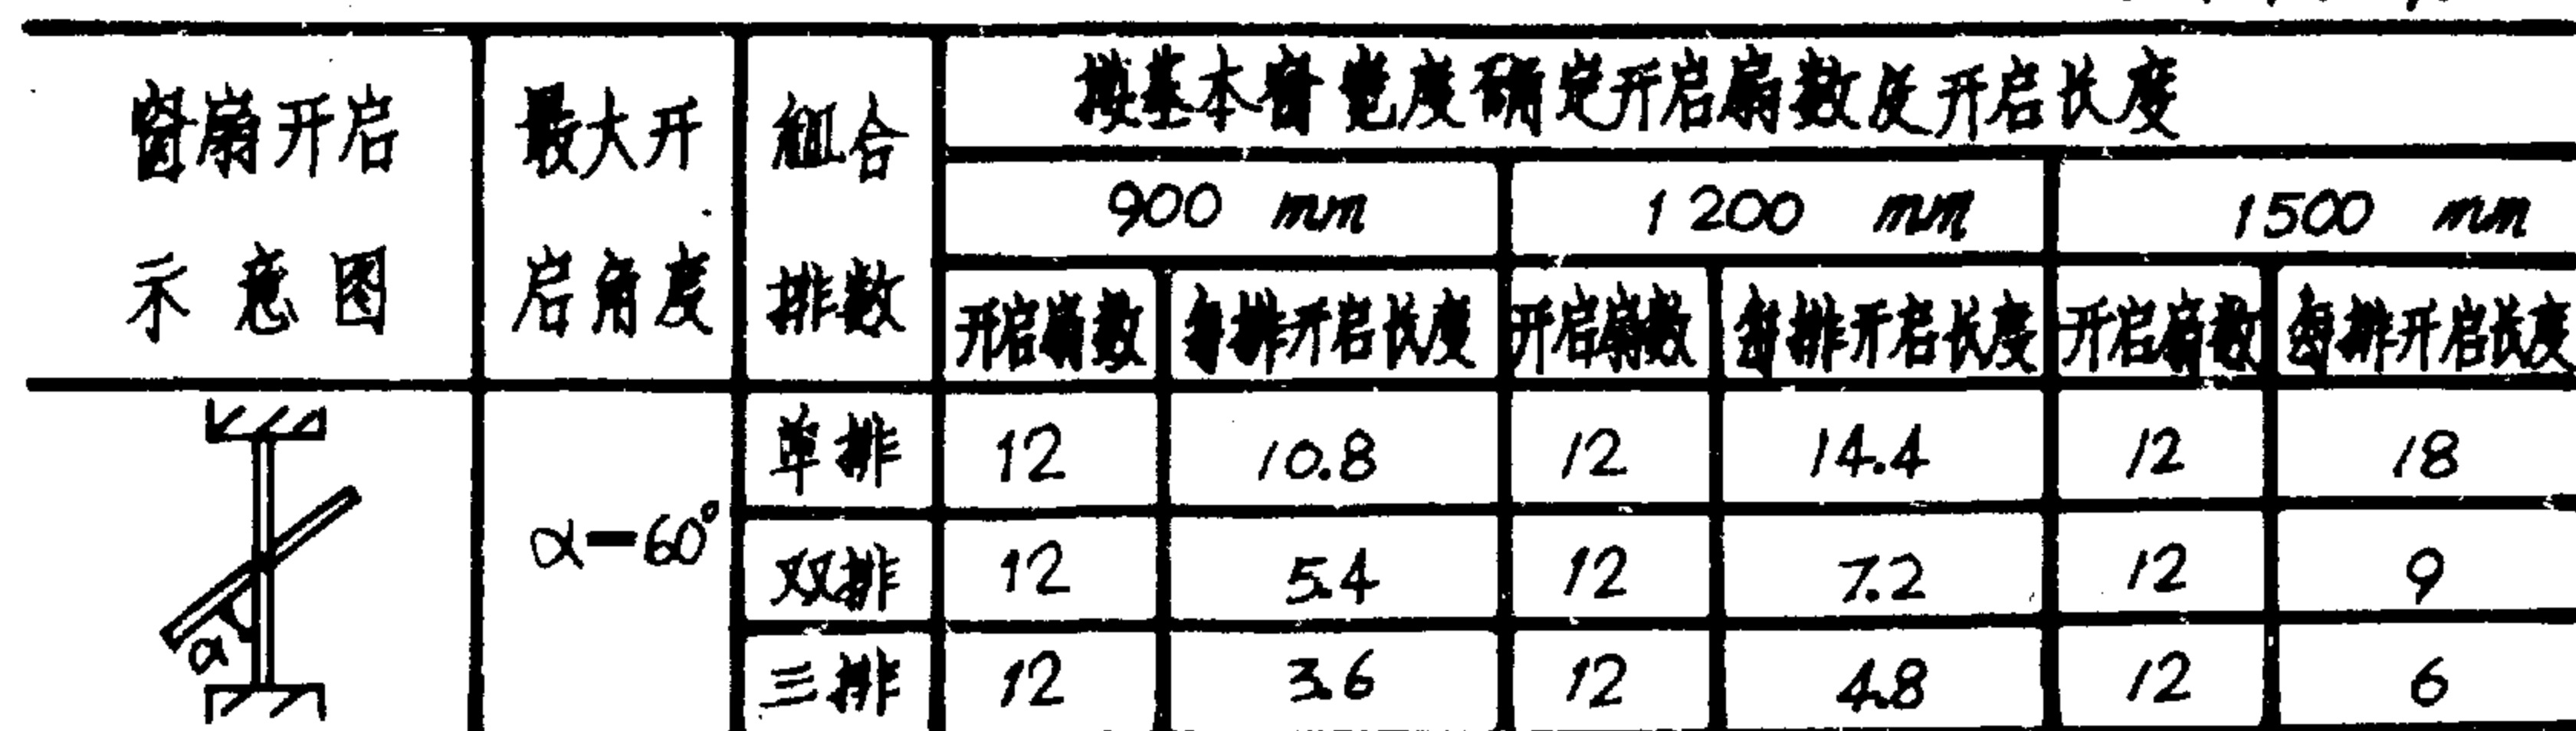 窗扇开启示意图 最大开启角度 组合排数 按基本窗宽度确定开启扇数及开启长度
900 mm 1200 mm 1500 mm
开启扇数 每排开启长度 开启扇数 每排开启长度 开启扇数 每排开启长度
α α=60° 单排 12 10.8 12 14.4 12 18
双排 12 5.4 12 7.2 12 9
三排 12 3.6 12 4.8 12 6